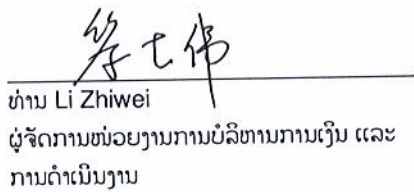 ທ່ານ Li Zhiwei
ຜູ້ຈັດການໜ່ວຍງານການບໍລິຫານການເງິນ ແລະ
ການດຳເນີນງານ